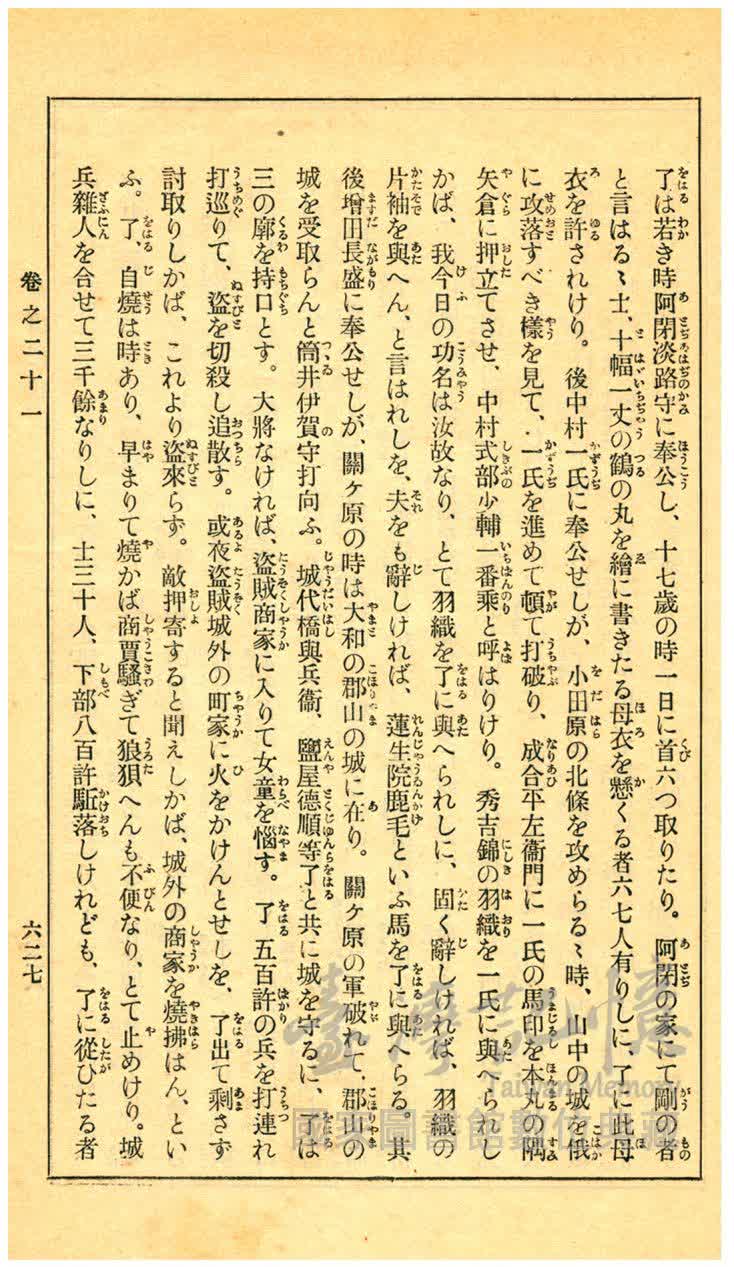 了は若き時阿閉淡路守に奉公し、十七歳の時一日に首六つ取りたり。阿閉の家にて剛の者
と言はるゝ士、十幅一丈の鶴の丸を繪に書きたる母衣を懸くる者六七人有りしに、了に此母
衣を許されけり。後中村一氏に奉公せしが、小田原の北條を攻めらるゝ時、山中の城を俄
に攻落すべき樣を見て、一氏を進めて頓て打破り、成合平左衞門に一氏の馬印を本丸の隅
矢倉に押立てさせ、中村式部少輔一番乘と呼はりけり。秀吉錦の羽織を一氏に與へられし
かば、我今日の功名は汝故なり、とて羽織を了に與へられしに、固く辭しければ、羽織の
片袖を與へん、と言はれしを、夫をも辭しければ、蓮生院鹿毛といふ馬を了に與へらる。其
後增田長盛に奉公せしが、關ヶ原の時は大和の郡山の城に在り。關ヶ原の軍破れて、郡山の
城を受取らんと筒井伊賀守打向ふ。城代橋與兵衞、鹽屋德順等了と共に城を守るに、了は
三の廓を持口とす。大將なければ、盜賊商家に入りて女童を惱す。了五百許の兵を打連れ
打巡りて、盜を切殺し追散す。或夜盜賊城外の町家に火をかけんとせしを、了出て剩さず
討取りしかば、これより盜來らず。敵押寄すると聞えしかば、城外の商家を燒拂はん、とい
ふ。了、自燒は時あり、早まりて燒かば商賈騷ぎて狼狽へんも不便なり、とて止めけり。城
兵雜人を合せて三千餘なりしに、士三十人、下部八百許駈落しけれども、了に從ひたる者
卷之二十一
六二七
臺灣記憶
Taiwan Memory